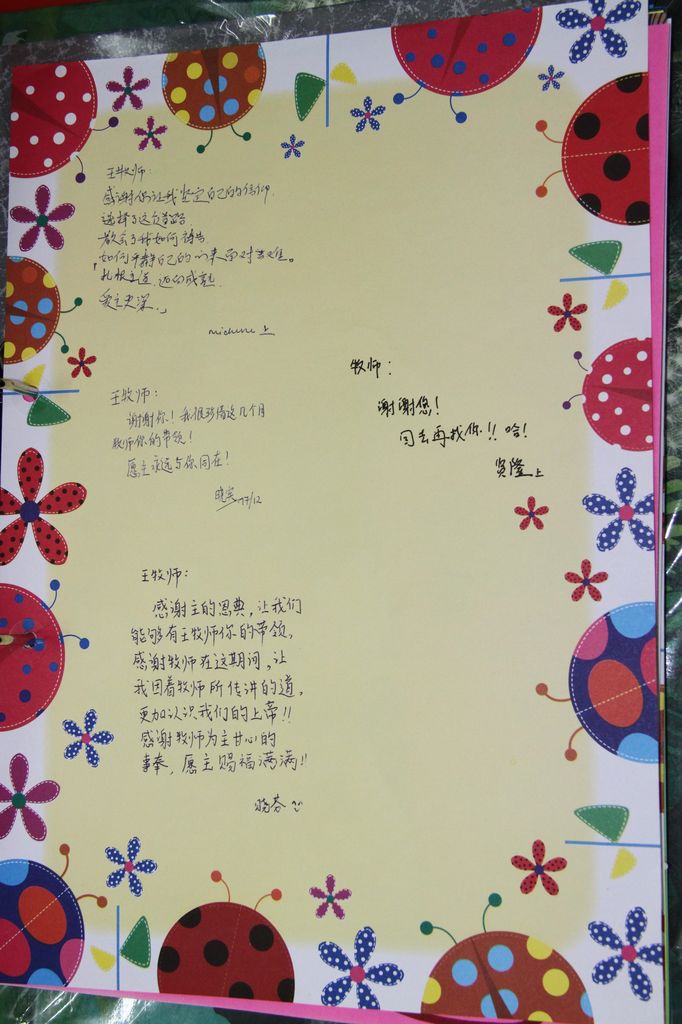 王牧师:
感谢你让我坚定自己的信仰.
选择了这条道路
教会了我如何祷告
如何平静自己的心来面对苦难。
扎根主道,迈向成熟.
爱主更深.
Michelle 上
牧师:
谢谢您!
回去再找你!! 哈!
贤隆上
王牧师:
谢谢你!我很珍惜这几个月
牧师你的带领!
愿主永远与你同在!
17/12
王牧师:
感谢主的恩典,让我们
能够有王牧师你的带领,
感谢牧师在这期间,让
我因着牧师所传讲的道,
更加认识我们的上帝!!
感谢牧师为主甘心的
事奉,愿主赐福满满!!
晓芬